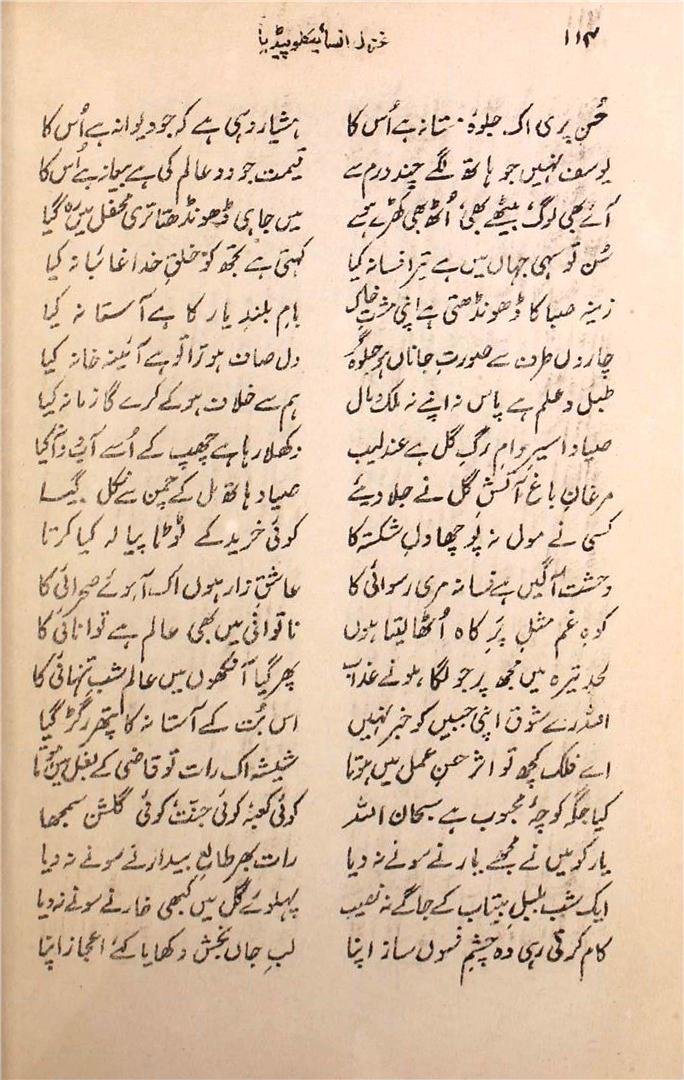 ۱۱۴ غزل انسائیکلوپیڈیا
حُسنِ پری اک جلوۂ مستانہ ہے اُس کا ہشیار وہی ہے کہ جو دیوانہ ہے اُس کا
یوسف نہیں جو ہاتھ لگے چند درم سے قیمت جو دو عالم کی ہے بیعانہ ہے اُس کا
آئے بھی لوگ بیٹھے بھی، اُٹھ بھی کھڑے ہوئے میں جا ہی ڈھونڈھتا تری محفل میں رہ گیا
سُن تو سہی جہاں میں ہے تیرا فسانہ کیا کہتی ہے تجھ کو خلقِ خدا غائبانہ کیا
زینہ صبا کا ڈھونڈھتی ہے اپنی مشتِ خاک بامِ بلند یار کا ہے آستانہ کیا
چاروں طرف سے صورتِ جاناں ہو جلوہ گر دل صاف ہو ترا تو ہے آئینہ خانہ کیا
طبل و علم ہے پاس نہ اپنے نہ ملک و مال ہم سے خلاف ہو کے کرے گا زمانہ کیا
صیاد اسیرِ دامِ رگِ گل ہے عندلیب دکھلا رہا ہے چھپ کے اُسے آب و دانہ کیا
مرغانِ باغ آتشِ گل نے جلا دیئے صیاد ہاتھ مل کے چمن سے نکل گیا
کسی نے مول نہ پوچھا دلِ شکستہ کا کوئی خرید کے ٹوٹا پیالہ کیا کرتا
وحشت آگیں ہے فسانہ مری رسوائی کا عاشقِ زار ہوں اک آہوئے صحرائی کا
کوہِ غم مثلِ پرِ کاہ اُٹھا لیتا ہوں ناتوانی میں بھی عالم ہے توانائی کا
لحدِ تیرہ میں مجھ پر جو لگا ہونے عذاب پھر گیا آنکھوں میں عالم شبِ تنہائی کا
اللہ رے شوق اپنی جبیں کو خبر نہیں اس بُت کے آستانہ کا پتھر رگڑ گیا
اے فلک کچھ تو اثر حسنِ عمل میں ہوتا شیشہ اک رات تو قاضی کے بغل میں ہوتا
کیا جگہ کوچۂ محبوب ہے سبحان اللہ کوئی کعبہ کوئی جنّت کوئی گلشن سمجھا
یار کو میں نے مجھے یار نے سونے نہ دیا رات بھر طالعِ بیدار نے سونے نہ دیا
ایک شب بلبلِ بیتاب کے جاگے نہ نصیب پہلوئے گل میں کبھی خار نے سونے نہ دیا
کام کرتی رہی وہ چشمِ فسوں ساز اپنا لبِ جاں بخش دکھایا کئے اعجاز اپنا